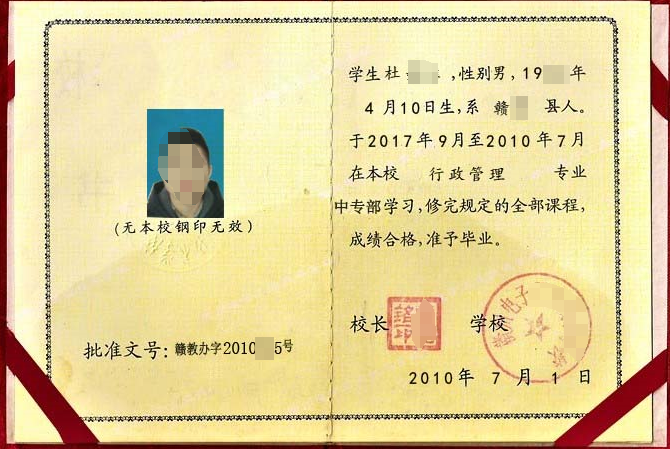 (无本校钢印无效)
批准文号:赣教办字2010 5号
学生杜 ,性别男,19 年
4月10日生,系 赣 县人。
于2017年9月至2010年7月
在本校 行政管理 专业
中专部学习,修完规定的全部课程,
成绩合格,准予毕业。
校长 学校
电子
2010年 7 月 1 日